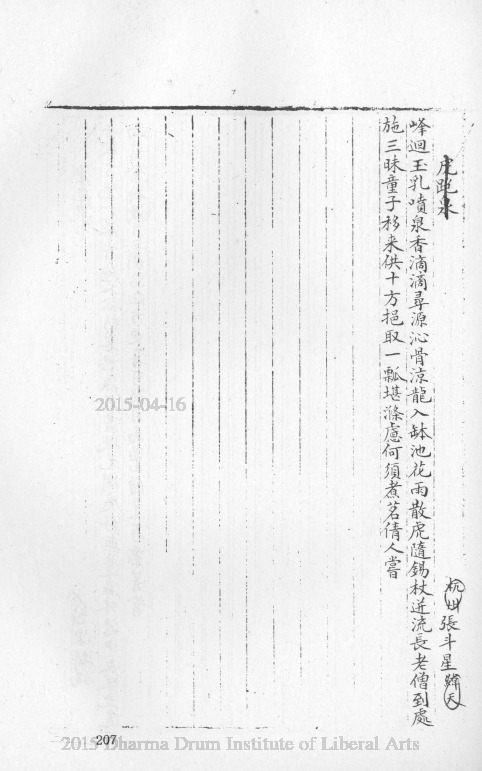 虎跑泉
杭州張斗星緯天
峰迴玉乳噴泉香滴滴尋源沁骨涼龍入缽池花雨散虎隨錫杖迸流長老僧到處
施三昧童子移来供十方挹取一瓢堪滌慮何須煮茗倩人嘗
2015-04-16
207
2015 Dharma Drum Institute of Liberal Arts